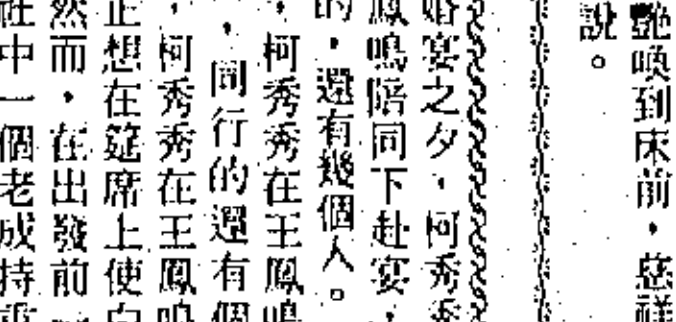 艷喚到床前，慈祥
說。
婚宴之夕，柯秀秀
鳳鳴陪同下赴宴，
的，還有幾個人。
，柯秀秀在王鳳鳴
，同行的還有個
，柯秀秀在王鳳鳴
正想在筵席上使白
然而，在出發前
社中一個老成持重